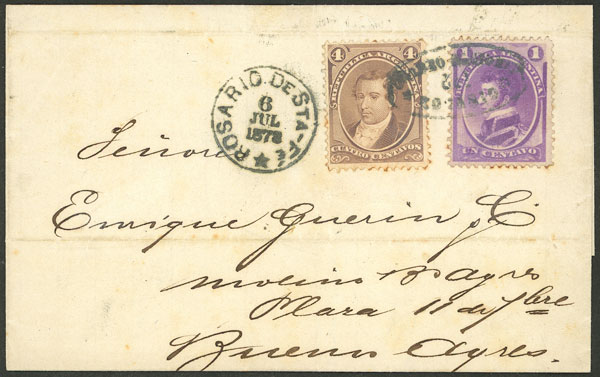 ROSARIO DE STA-FÉ
6
JUL
1878
4 4
REPUBLICA ARGENTINA
CUATRO CENTAVOS
1 1
REPUBLICA ARGENTINA
UN CENTAVO
Señores
Enrique Guerin y C
Molino B Ayres
Plaza 11 de 7bre
Buenos Ayres.